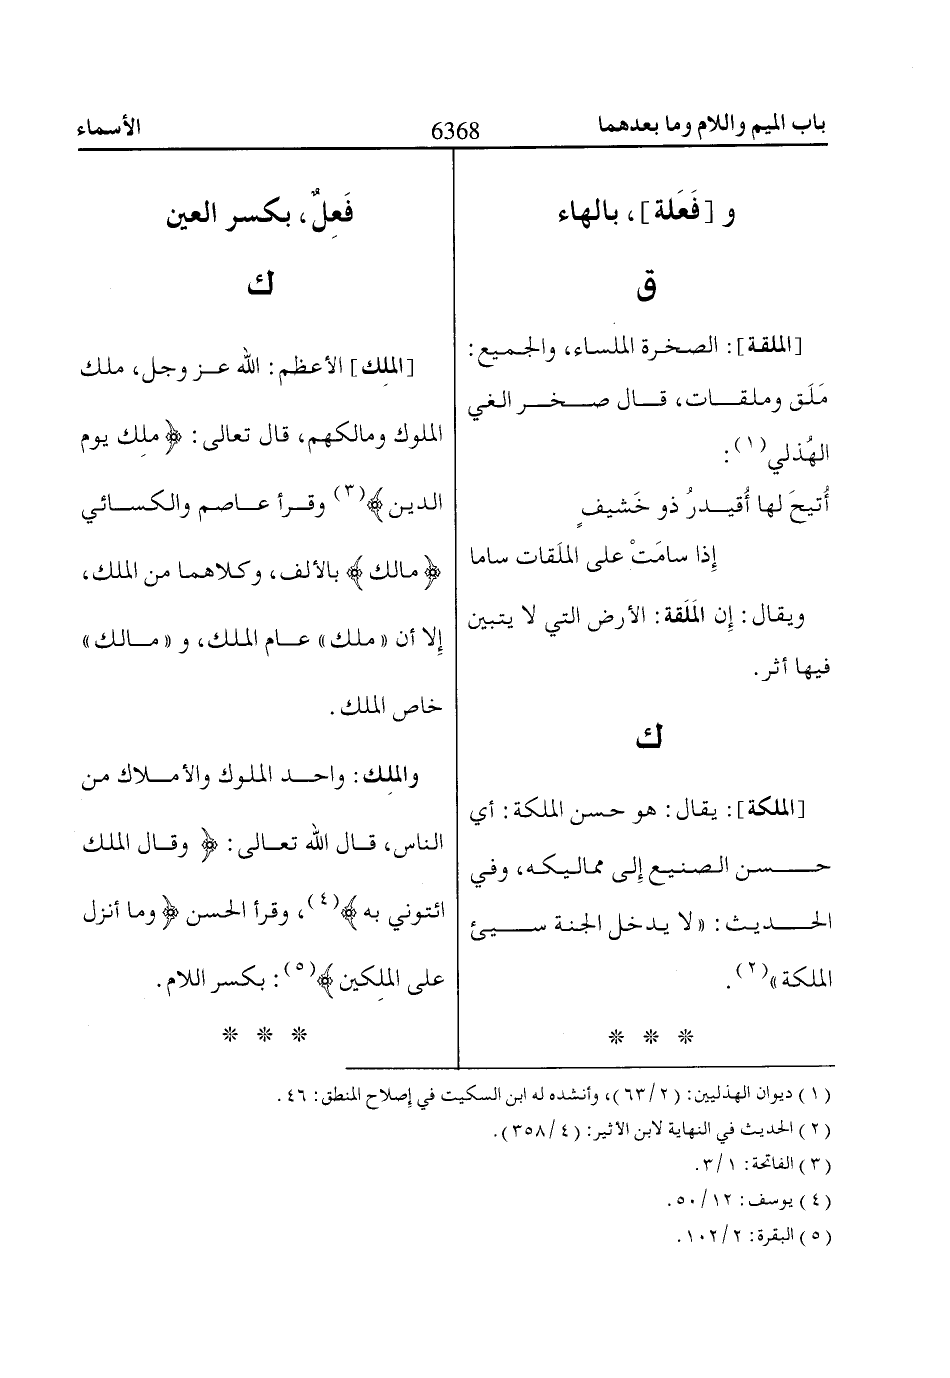 باب الميم واللام وما بعدهما 6368 الأسماء
و [فَعَلة]، بالهاء
ق
[الملقة]: الصخرة الملساء، والجميع:
مَلَق وملقـات، قـال صـخـر الغي
الهُذلي(١):
أُتيحَ لها أُقيـدرُ ذو خَشيفٍ
إذا سامَتْ على الملَقات ساما
ويقال: إن الَملَقة: الأرض التي لا يتبين
فيها أثر.
ك
[الملكة]: يقال: هو حسن الملكة: أي
حـسن الصنيع إلى مماليكه، وفي
الحـديث: «لا يدخل الجنة سـيئ
الملكة»(٢).
* * *
فَعِلٌ، بكسر العين
ك
[الملِك] الأعظم: الله عـز وجل، ملك
الملوك ومالكهم، قال تعالى: ﴿ملِك يوم
الدين﴾(٣) وقـرأ عـاصم والكسـائي
﴿مالك﴾ بالألف، وكلاهما من الملك،
إلا أن «ملك» عـام الملك، و «مـالك»
خاص الملك.
والملِك: واحـد الملوك والأمـلاك من
الناس، قـال الله تعـالى: ﴿وقال الملك
ائتوني به﴾(٤)، وقرأ الحسن ﴿وما أنزل
على الملِكين﴾(٥): بكسر اللام.
* * *
(١) ديوان الهذليين: (٢/٦٣)، وأنشده له ابن السكيت في إصلاح المنطق: ٤٦.
(٢) الحديث في النهاية لابن الأثير: (٤/٣٥٨).
(٣) الفاتحة: ١/٣.
(٤) يوسف: ١٢/٥٠.
(٥) البقرة: ٢/١٠٢.